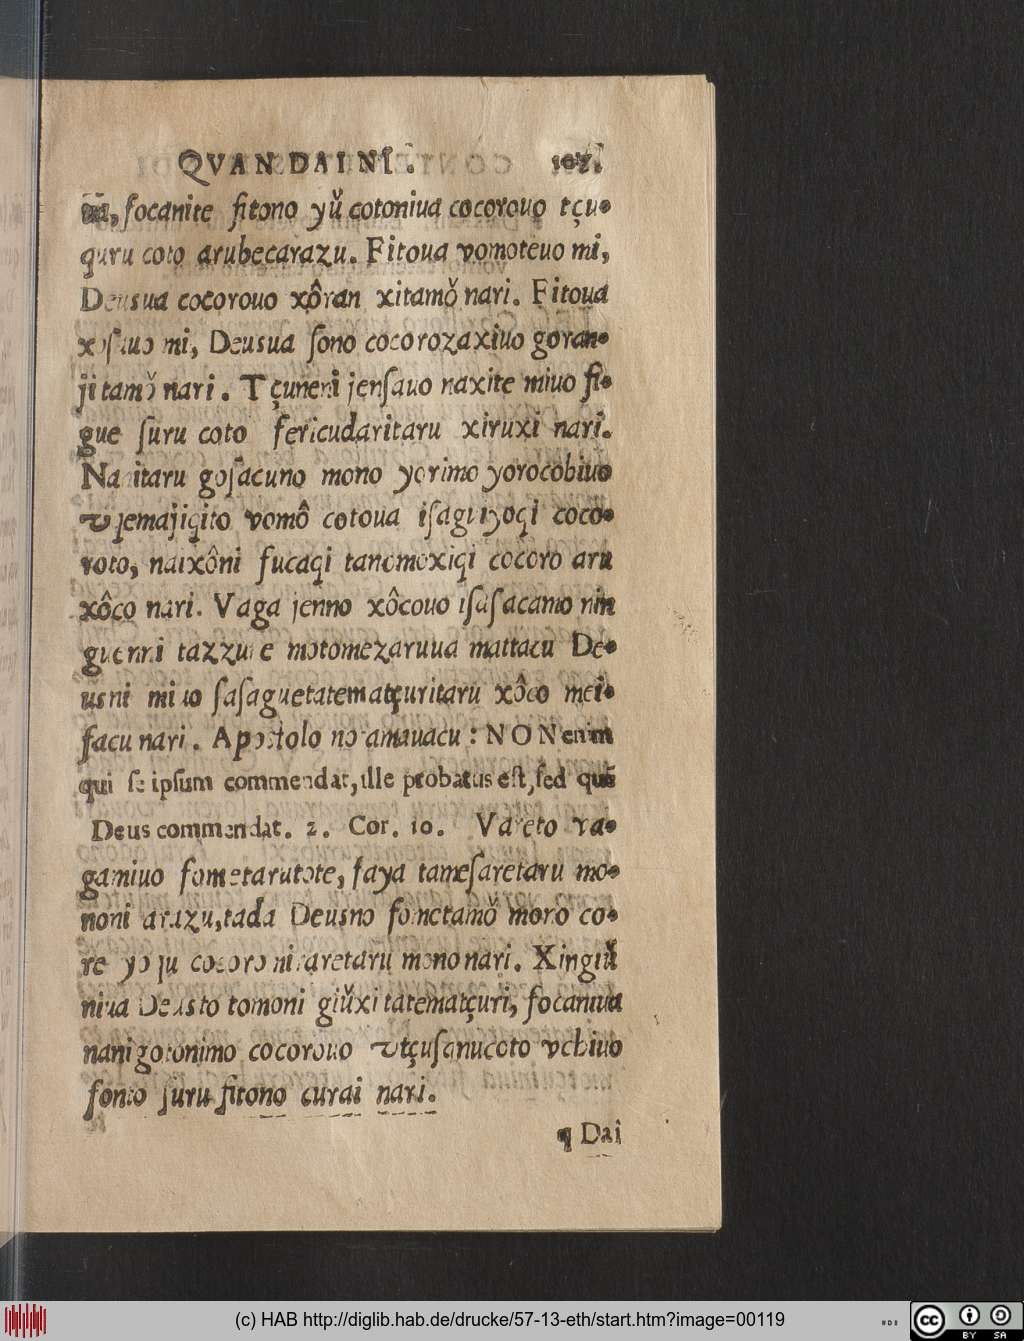 QVAN DAI NI. 107.
focanite fitono yǔ cotoniua cocorouo tçu-
quru coto arubecarazu. Fitoua vomoteuo mi,
Deusua cocorouo xôran xitamǒ nari. Fitoua
xosauo mi, Deusua ſono cocorozaxiuo goran-
ji tamǒ nari. Tçuneni jenſauo naxite miuo fi-
gue ſuru coto fericudaritaru xiruxi nari.
Na itaru goſacuno mono yorimo yorocobiuo
vqemajiqito vomô cotoua iſaguiyoqi coco-
roto, naixôni fucaqi tanomoxiqi cocoro aru
xôco nari. Vaga jenno xôcouo iſaſacamo nin
guenni tazzune motomezaruua mattacu De-
usni miuo ſaſaguetatematçuritaru xôco mei-
facu nari. Apostolo no amauacu: NON enim
qui se ipſum commendat, ille probatus eſt, ſed quē
Deus commendat. 2. Cor. 10. Vareto va-
gamiuo fometarutote, faya tameſaretaru mo-
noni arazu, tada Deusno fometamǒ moro co-
re yoqu cocoro miraretaru mono nari. Xingiǔ
niua Deusto tomoni giǔxi tatematçuri, focaniua
nanigotonimo cocorouo vtçuſanucoto vchiuo
fonto ſuru fitono curai nari.
¶ Dai
(c) HAB http://diglib.hab.de/drucke/57-13-eth/start.htm?image=00119
cc BY SA